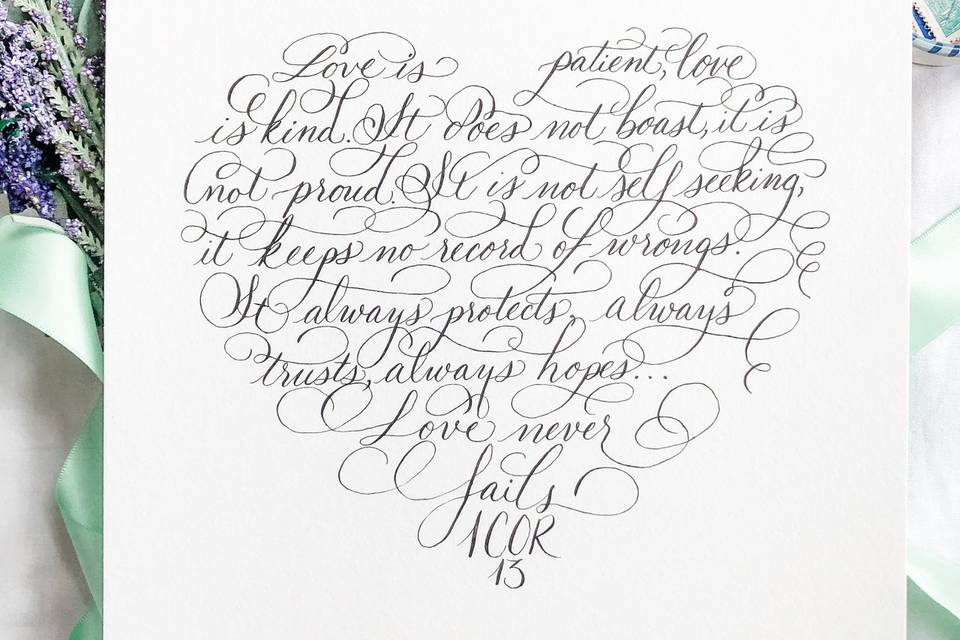 Love is patient, love
is kind. It does not boast, it is
not proud. It is not self seeking,
it keeps no record of wrongs.
It always protects, always
trusts, always hopes...
Love never
fails
1 COR
13